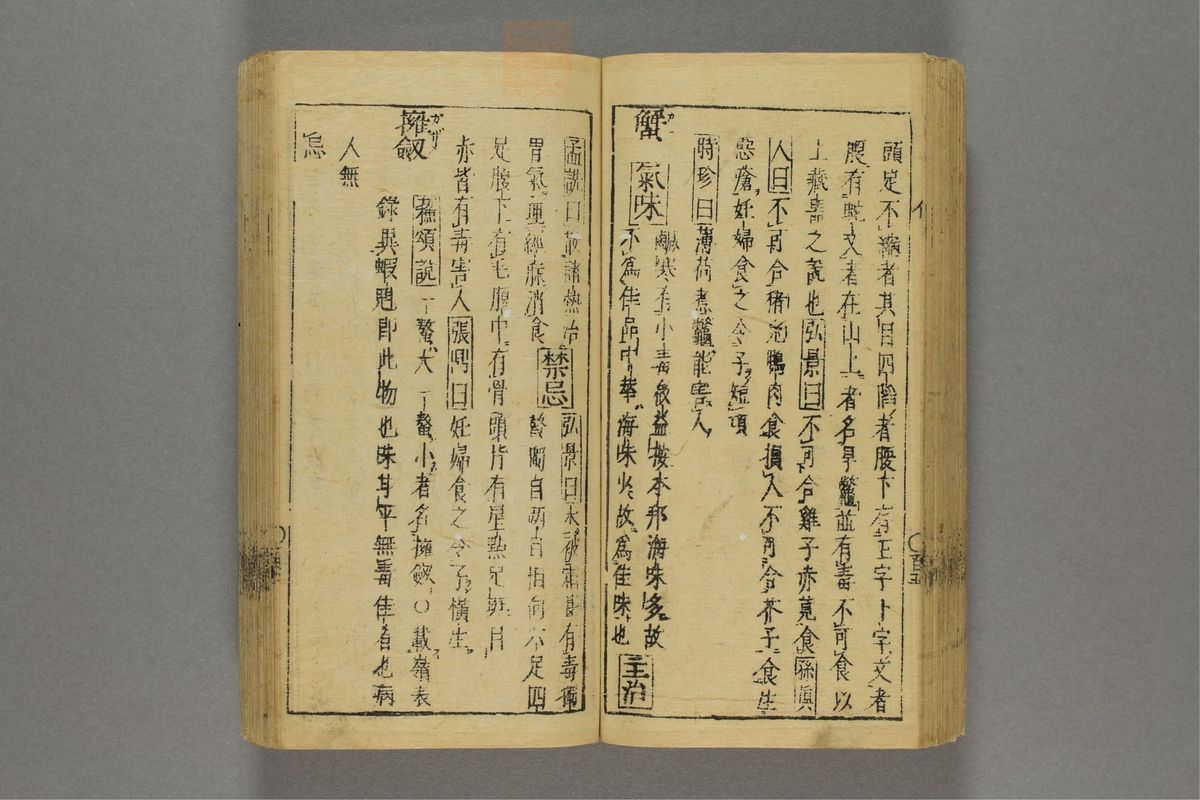 頭足不縮者其目四陷者腰下有王字卜字文者
腹有蛇文者在山上者名旱鼈並有毒不可食以
上藏器之說也弘景曰不可合雞子赤莧食孫眞
人曰不可合猪兎鴨肉食損人不可合芥子食生
惡瘡妊婦食之令子短項
時珍曰薄荷煮鼈能害人
蟹カニ 氣味 鹹寒有小毒 按本邦海味多故
不爲佳品中華海味少故爲佳味也 主治
孟詵曰散諸熱治
胃氣理經脉消食 禁忌 弘景曰未被霜甚有毒獨
螯獨目兩目相向六足四
足腹下有毛腹中有骨頭背有星點足斑目
赤皆有毒害人張鼎曰妊婦食之令子橫生
擁劔ガザ 蘇頌說一螯大一螯小者名擁劔○載嶺表
錄與蝦𧑅卽此物也味甘平無毒佳肴也病
人無
忌